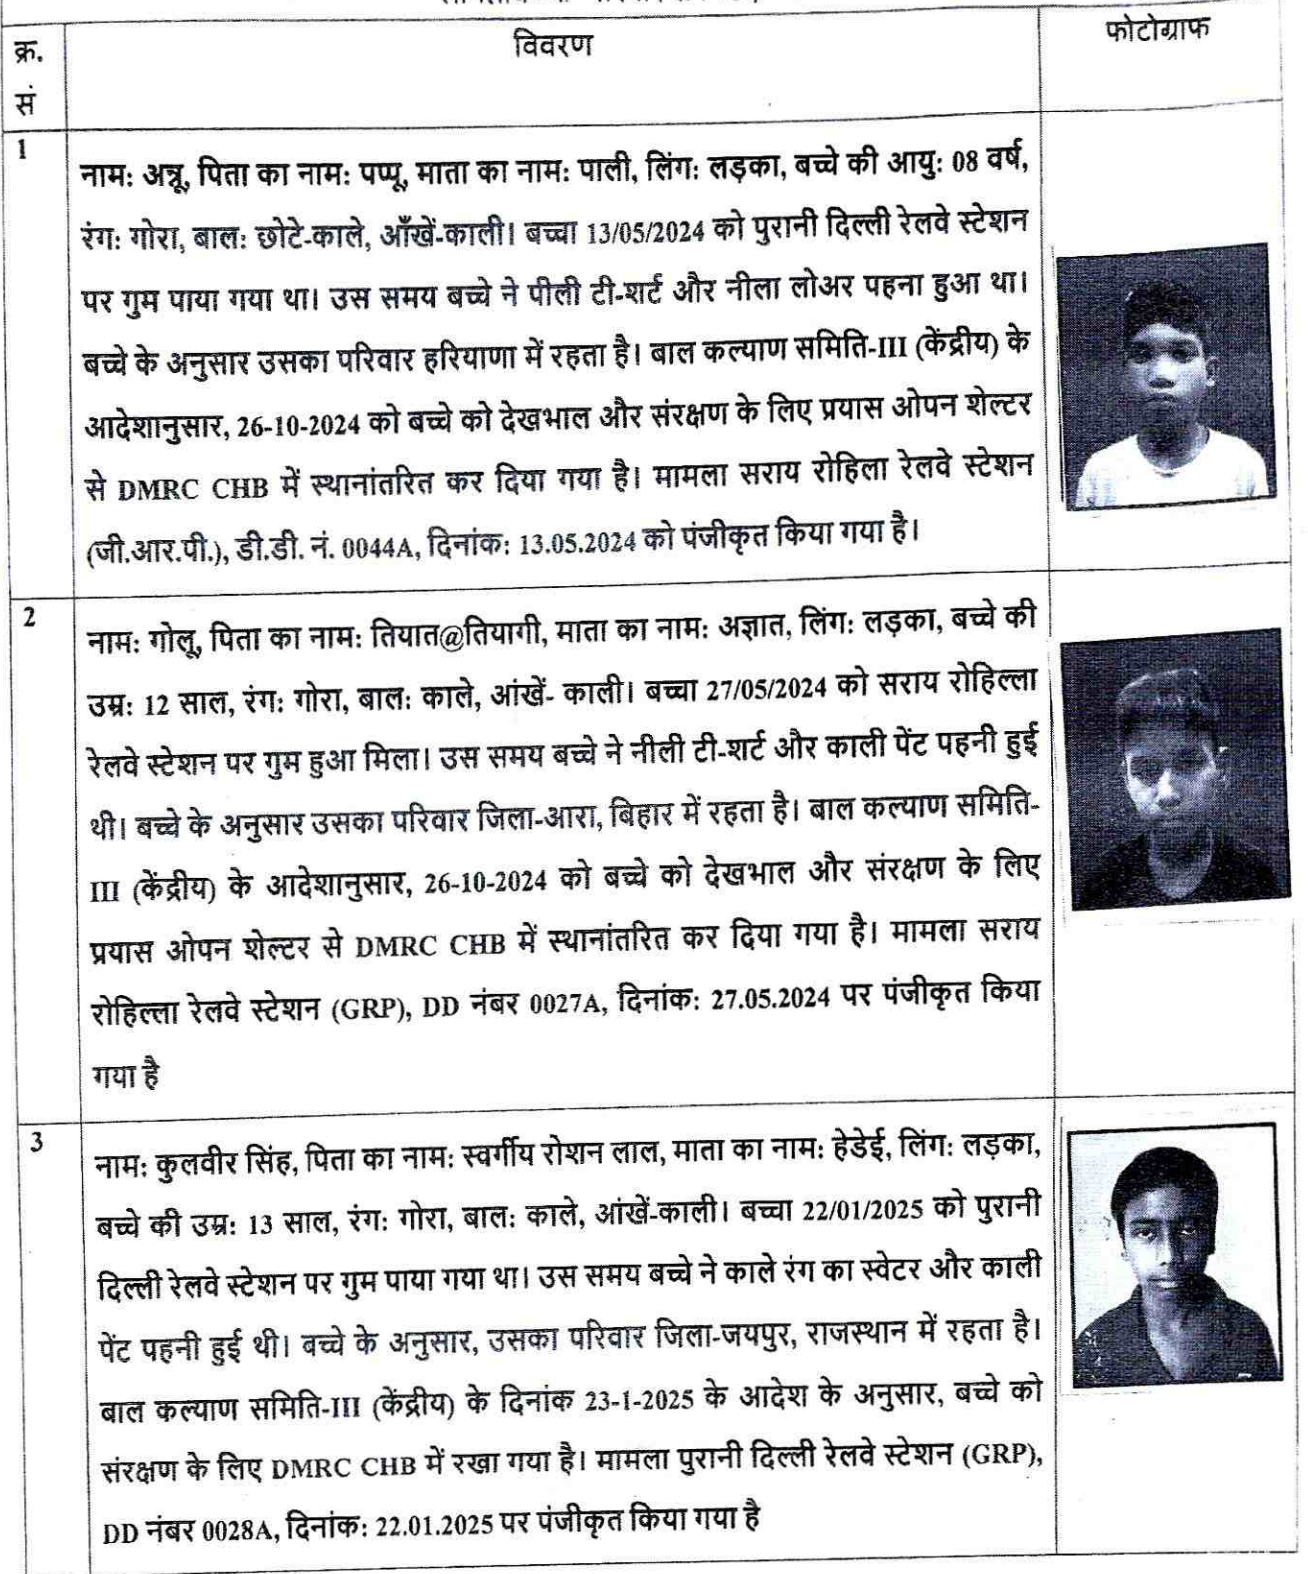 क्र.
सं
विवरण
फोटोग्राफ
1
नाम: अन्नू, पिता का नाम: पप्पू, माता का नाम: पाली, लिंग: लड़का, बच्चे की आयु: 08 वर्ष,
रंग: गोरा, बाल: छोटे-काले, आँखें-काली। बच्चा 13/05/2024 को पुरानी दिल्ली रेलवे स्टेशन
पर गुम पाया गया था। उस समय बच्चे ने पीली टी-शर्ट और नीला लोअर पहना हुआ था।
बच्चे के अनुसार उसका परिवार हरियाणा में रहता है। बाल कल्याण समिति-III (केंद्रीय) के
आदेशानुसार, 26-10-2024 को बच्चे को देखभाल और संरक्षण के लिए प्रयास ओपन शेल्टर
से DMRC CHB में स्थानांतरित कर दिया गया है। मामला सराय रोहिला रेलवे स्टेशन
(जी.आर.पी.), डी.डी. नं. 0044A, दिनांक: 13.05.2024 को पंजीकृत किया गया है।
2
नाम: गोलू, पिता का नाम: तियात@तियागी, माता का नाम: अज्ञात, लिंग: लड़का, बच्चे की
उम्र: 12 साल, रंग: गोरा, बाल: काले, आंखें- काली। बच्चा 27/05/2024 को सराय रोहिल्ला
रेलवे स्टेशन पर गुम हुआ मिला। उस समय बच्चे ने नीली टी-शर्ट और काली पेंट पहनी हुई
थी। बच्चे के अनुसार उसका परिवार जिला-आरा, बिहार में रहता है। बाल कल्याण समिति-
III (केंद्रीय) के आदेशानुसार, 26-10-2024 को बच्चे को देखभाल और संरक्षण के लिए
प्रयास ओपन शेल्टर से DMRC CHB में स्थानांतरित कर दिया गया है। मामला सराय
रोहिल्ला रेलवे स्टेशन (GRP), DD नंबर 0027A, दिनांक: 27.05.2024 पर पंजीकृत किया
गया है
3
नाम: कुलवीर सिंह, पिता का नाम: स्वर्गीय रोशन लाल, माता का नाम: हेडेई, लिंग: लड़का,
बच्चे की उम्र: 13 साल, रंग: गोरा, बाल: काले, आंखें-काली। बच्चा 22/01/2025 को पुरानी
दिल्ली रेलवे स्टेशन पर गुम पाया गया था। उस समय बच्चे ने काले रंग का स्वेटर और काली
पेंट पहनी हुई थी। बच्चे के अनुसार, उसका परिवार जिला-जयपुर, राजस्थान में रहता है।
बाल कल्याण समिति-III (केंद्रीय) के दिनांक 23-1-2025 के आदेश के अनुसार, बच्चे को
संरक्षण के लिए DMRC CHB में रखा गया है। मामला पुरानी दिल्ली रेलवे स्टेशन (GRP),
DD नंबर 0028A, दिनांक: 22.01.2025 पर पंजीकृत किया गया है